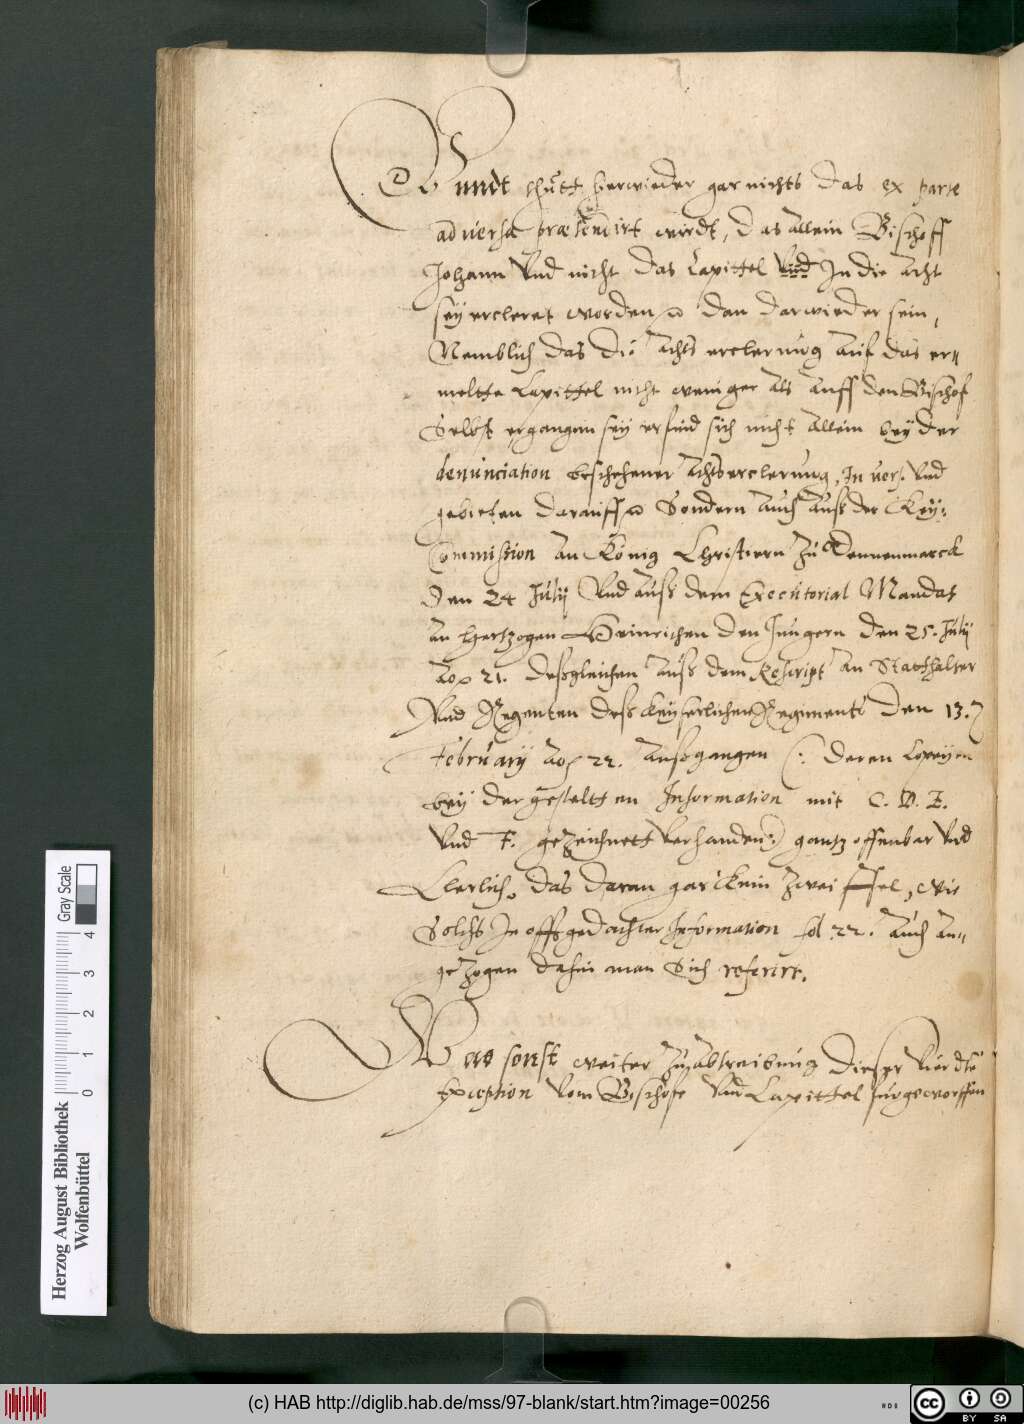 Vnndt thutt herwieder gar nichts das ex parte
adversa praetendirt wirdt, das allein Bischoff
Johann Vnd nicht das Capittel Vnd In die Acht
sey ercleret worden dan darwieder sein,
Nemblich das die Achts erclerung auf das er„
meltte Capittel nicht weniger als auff den Bischof
Selbst ergangen sey erfind sich nicht allein bey der
denunciation beschehener Achtserclerung, In vers. Vnd
gebieten darauff Sondern auch auß der Key:
Commission an König Christiern zu Dennenmarck
Den 24 July Vnd auß dem Executorial Mandat
an Hertzogen Heinrichen den Jungern den 25. July
Ao 21. deßgleichen auß dem Rescript an Statthalter
Vnd Regenten deß Keyserlichen Regiments den 13.
February Ao 22. außgangen (: deren Copeyen
bey der gestaltten Information mit C. D. E.
Vnd F. gezeichnett Verhanden:) gantz offenbar Vnd
Clerlich, das daran gar kein zweiffel, wie
Solchs In offtgedachter Information fol. 22. auch an„
gezogen dahin man Sich referirt.
Was sonst weiter zu abtreibung dieser Vierdte
Exception Vom Bischofe Vnd Capittel furgeworffen
0 1 2 3 4
Gray Scale
Herzog August Bibliothek
Wolfenbüttel
(c) HAB http://diglib.hab.de/mss/97-blank/start.htm?image=00256
cc BY SA